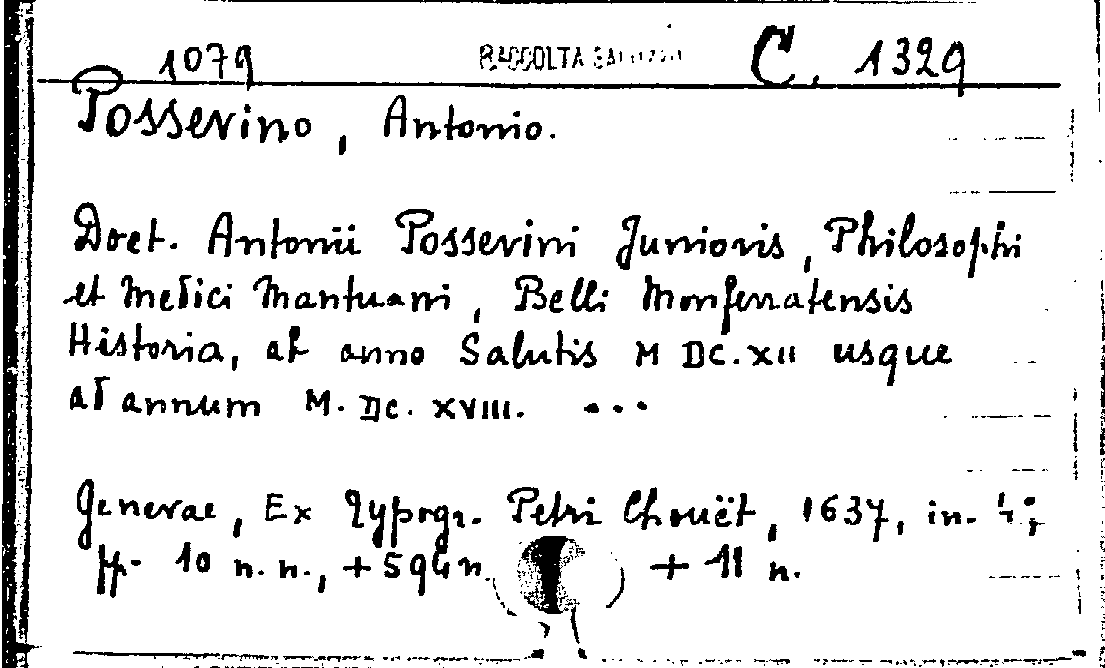 1079 RACCOLTA C. 1329
Possevino, Antonio.
Doct. Antonii Possevini Junioris, Philosophi
et Medici Mantuani, Belli Monferratensis
Historia, ab anno Salutis M DC.XII usque
ad annum M. DC. XVIII. ...
Genevae, Ex Typogr. Petri Chouët, 1637, in. 4°;
pp. 10 n.n., + 594 n. + 11 n.